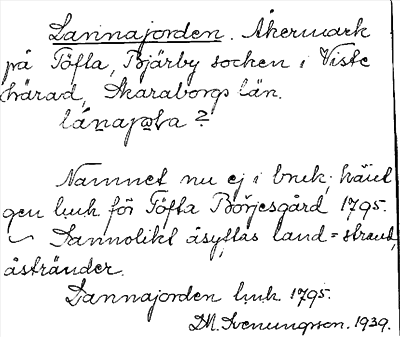 Lannajorden. Åkermark
på Töfta, Bjärby socken i Viste
härad, Skaraborgs län.
?
Namnet nu ej i bruk;
gen för Töfta Börjesgård 1795.
Sannolikt åsyftas land = strand,
åstränder.
Lannajorden 1795.
D.M. Svenungsson. 1939.